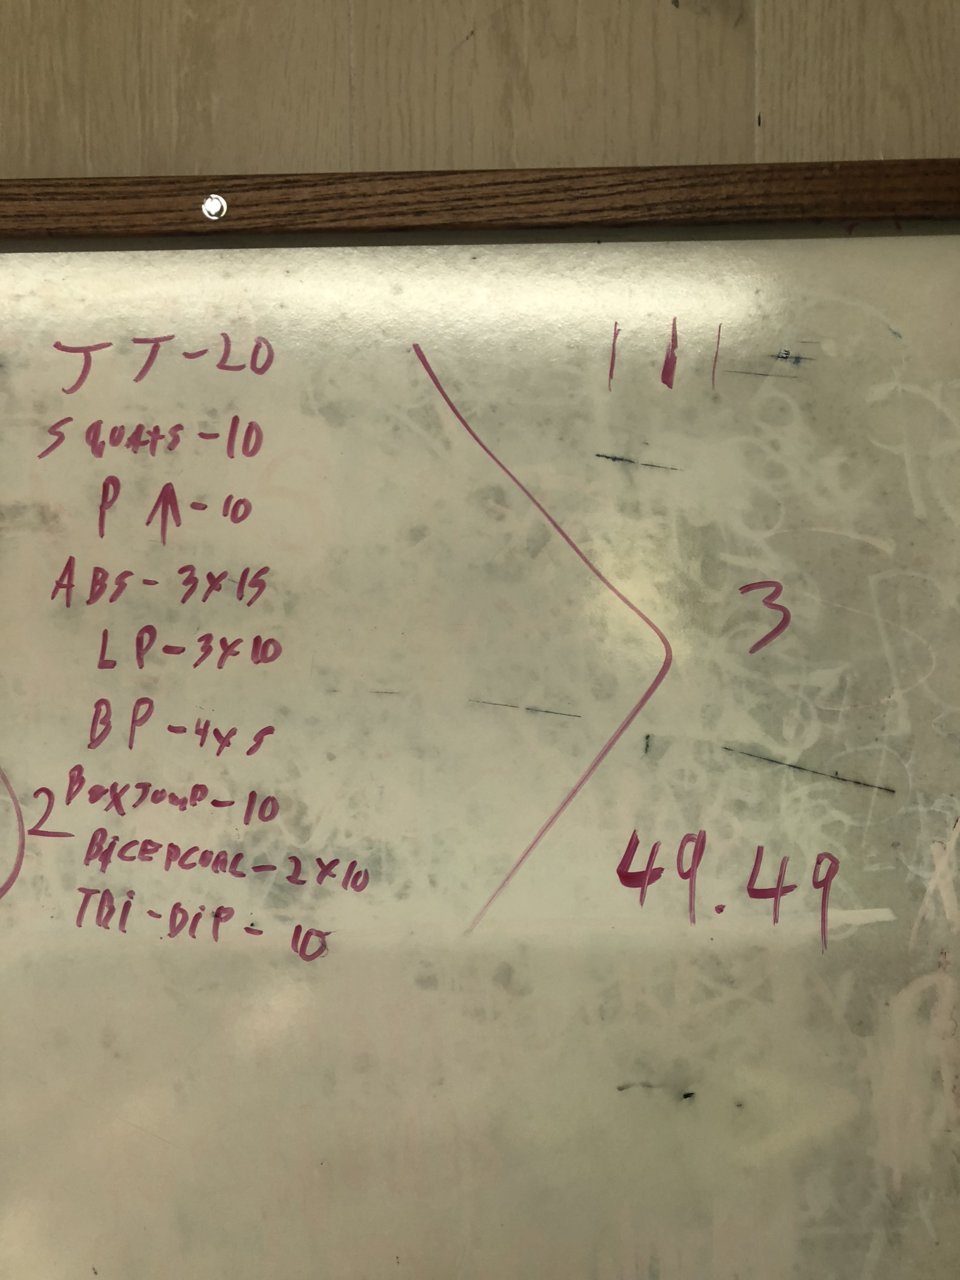 JJ-20
SQUATS-10
P ↑-10
ABS-3x15
LP-3x10
BP-4x5
2
BOXJUMP-10
BiCEPCURL-2x10
TRi-DiP-10
111
3
49.49